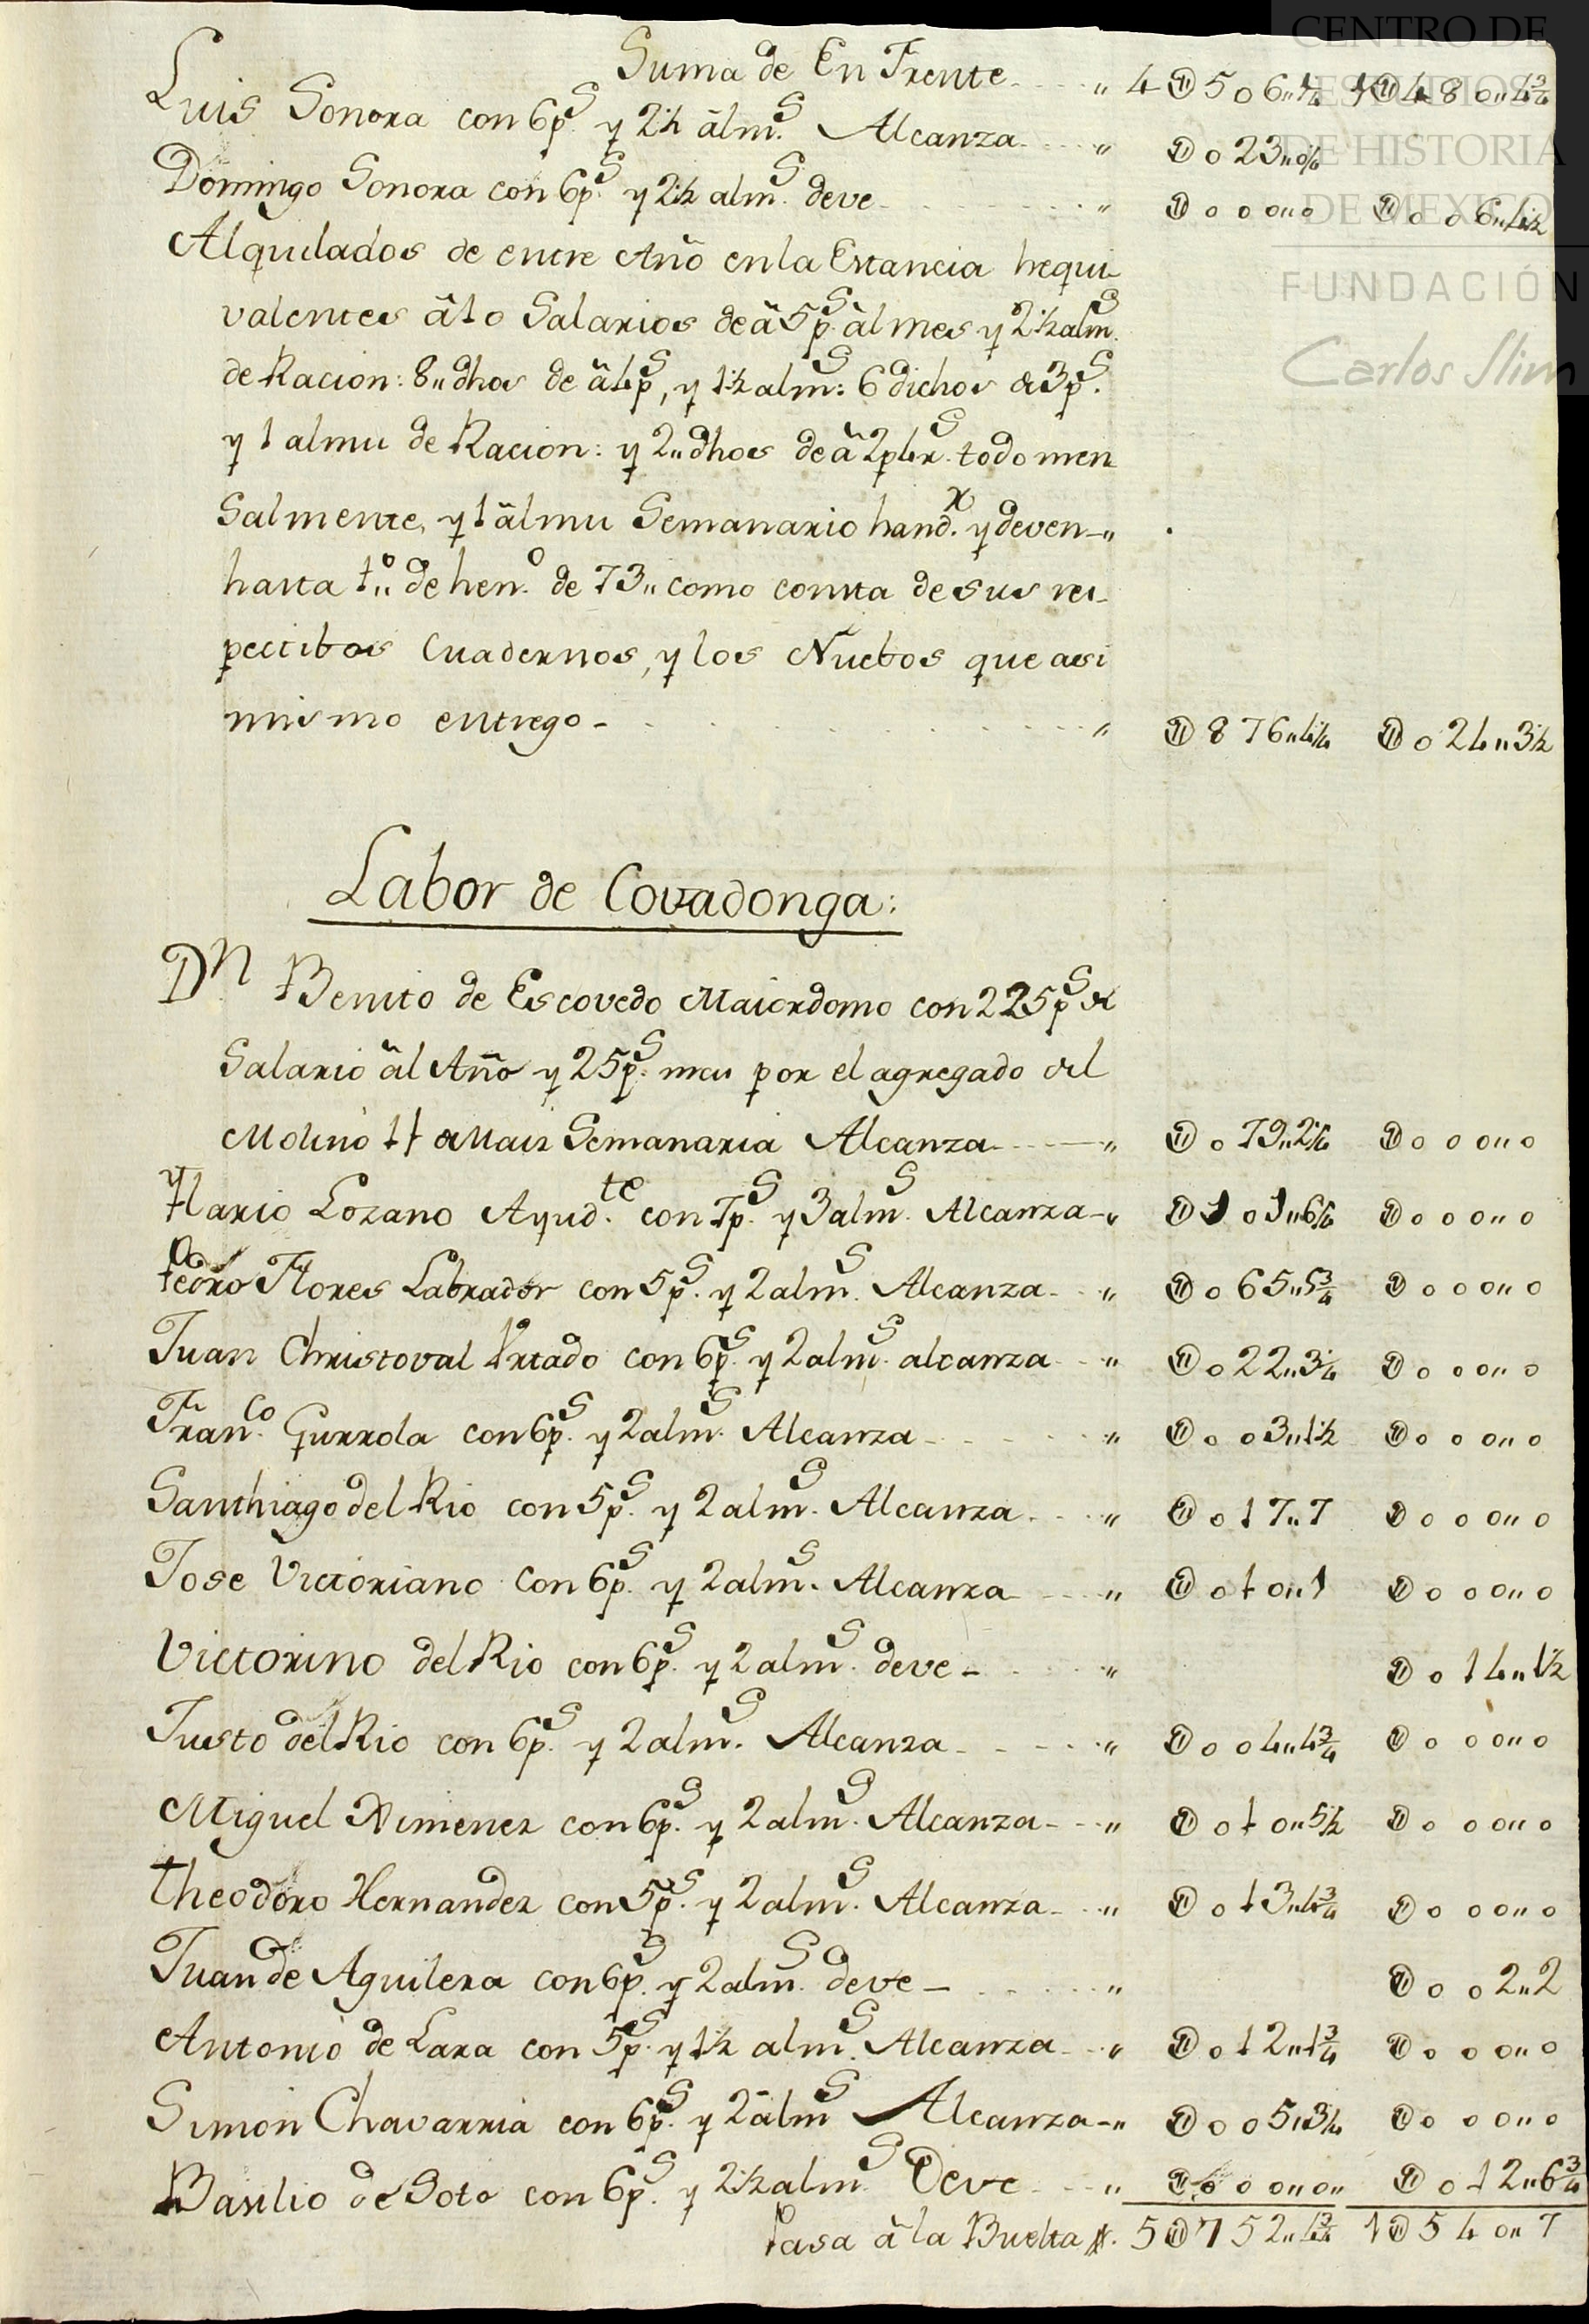 CENTRO DE
ESTUDIOS
DE HISTORIA
DE MEXICO
FUNDACIÓN
Carlos Slim
Suma de En Frente " 4 U 506"1/4 1 U 480"4 3/4
Luis Sonora con 6p.s y 2½ âlm.s Alcanza " U 023"0/4
Domingo Sonora con 6p.s y 2½ alm.s deve " U 000"0 U 006"4½
Alquilados de entre Año en la Estancia hequi-
valentes â 10 Salarios de â 5p.s âl mes y 2½ alm.s
de Racion: 8" dhos de â 4p.s, y 1½ alm.s: 6 dichos de 3p.s
y 1 almu de Racion: y 2" dhos de â 2p 4r.s todo men
salmente, y 1 âlmu Semanario hand.r y deven "
hasta 1.o" de hen.o de 73" como consta de sus res-
pectibos Cuadernos, y los Nuebos que asi
mismo entrego - " U 876"4¼ U 024"3½
Labor de Covadonga:
D.n Benito de Escovedo Maiordomo con 225p.s de
Salario âl Año y 25p.s mas por el agregado del
Molino 1 f de Mais Semanaria Alcanza " U 079"2¼ U 000"0
Ylario Lozano Ayud.te con 7p.s y 3 alm.s Alcanza " U 101"6¼ U 000"0
Pedro Flores Labrador con 5p.s y 2 alm.s Alcanza " U 065"5¾ U 000"0
Juan Christoval Urtado con 6p.s y 2 alm.s alcanza " U 022"3¼ U 000"0
Fran.co Gurrola con 6p.s y 2 alm.s Alcanza " U 003"1½ U 000"0
Santhiago del Rio con 5p.s y 2 alm.s Alcanza " U 017"7 U 000"0
Jose Victoriano con 6p.s y 2 alm.s Alcanza " U 010"1 U 000"0
Victorino del Rio con 6p.s y 2 alm.s deve - " U 014"1½
Justo del Rio con 6p.s y 2 alm.s Alcanza " U 004"4¾ U 000"0
Miguel Ximenez con 6p.s y 2 alm.s Alcanza " U 010"5½ U 000"0
Theodoro Hernandez con 5p.s y 2 alm.s Alcanza " U 013"4¾ U 000"0
Juan de Aguilera con 6p.s y 2 alm.s deve - " U 002"2
Antonio de Lara con 5p.s y 1½ alm.s Alcanza " U 012"1¾ U 000"0
Simon Chavarria con 6p.s y 2 âlm.s Alcanza " U 005"3¼ U 000"0
Basilio de Soto con 6p.s y 2½ alm.s Deve " U 000"0" U 012"6¾
Pasa â la Buelta 5 U 752"4¾ 1 U 540"7